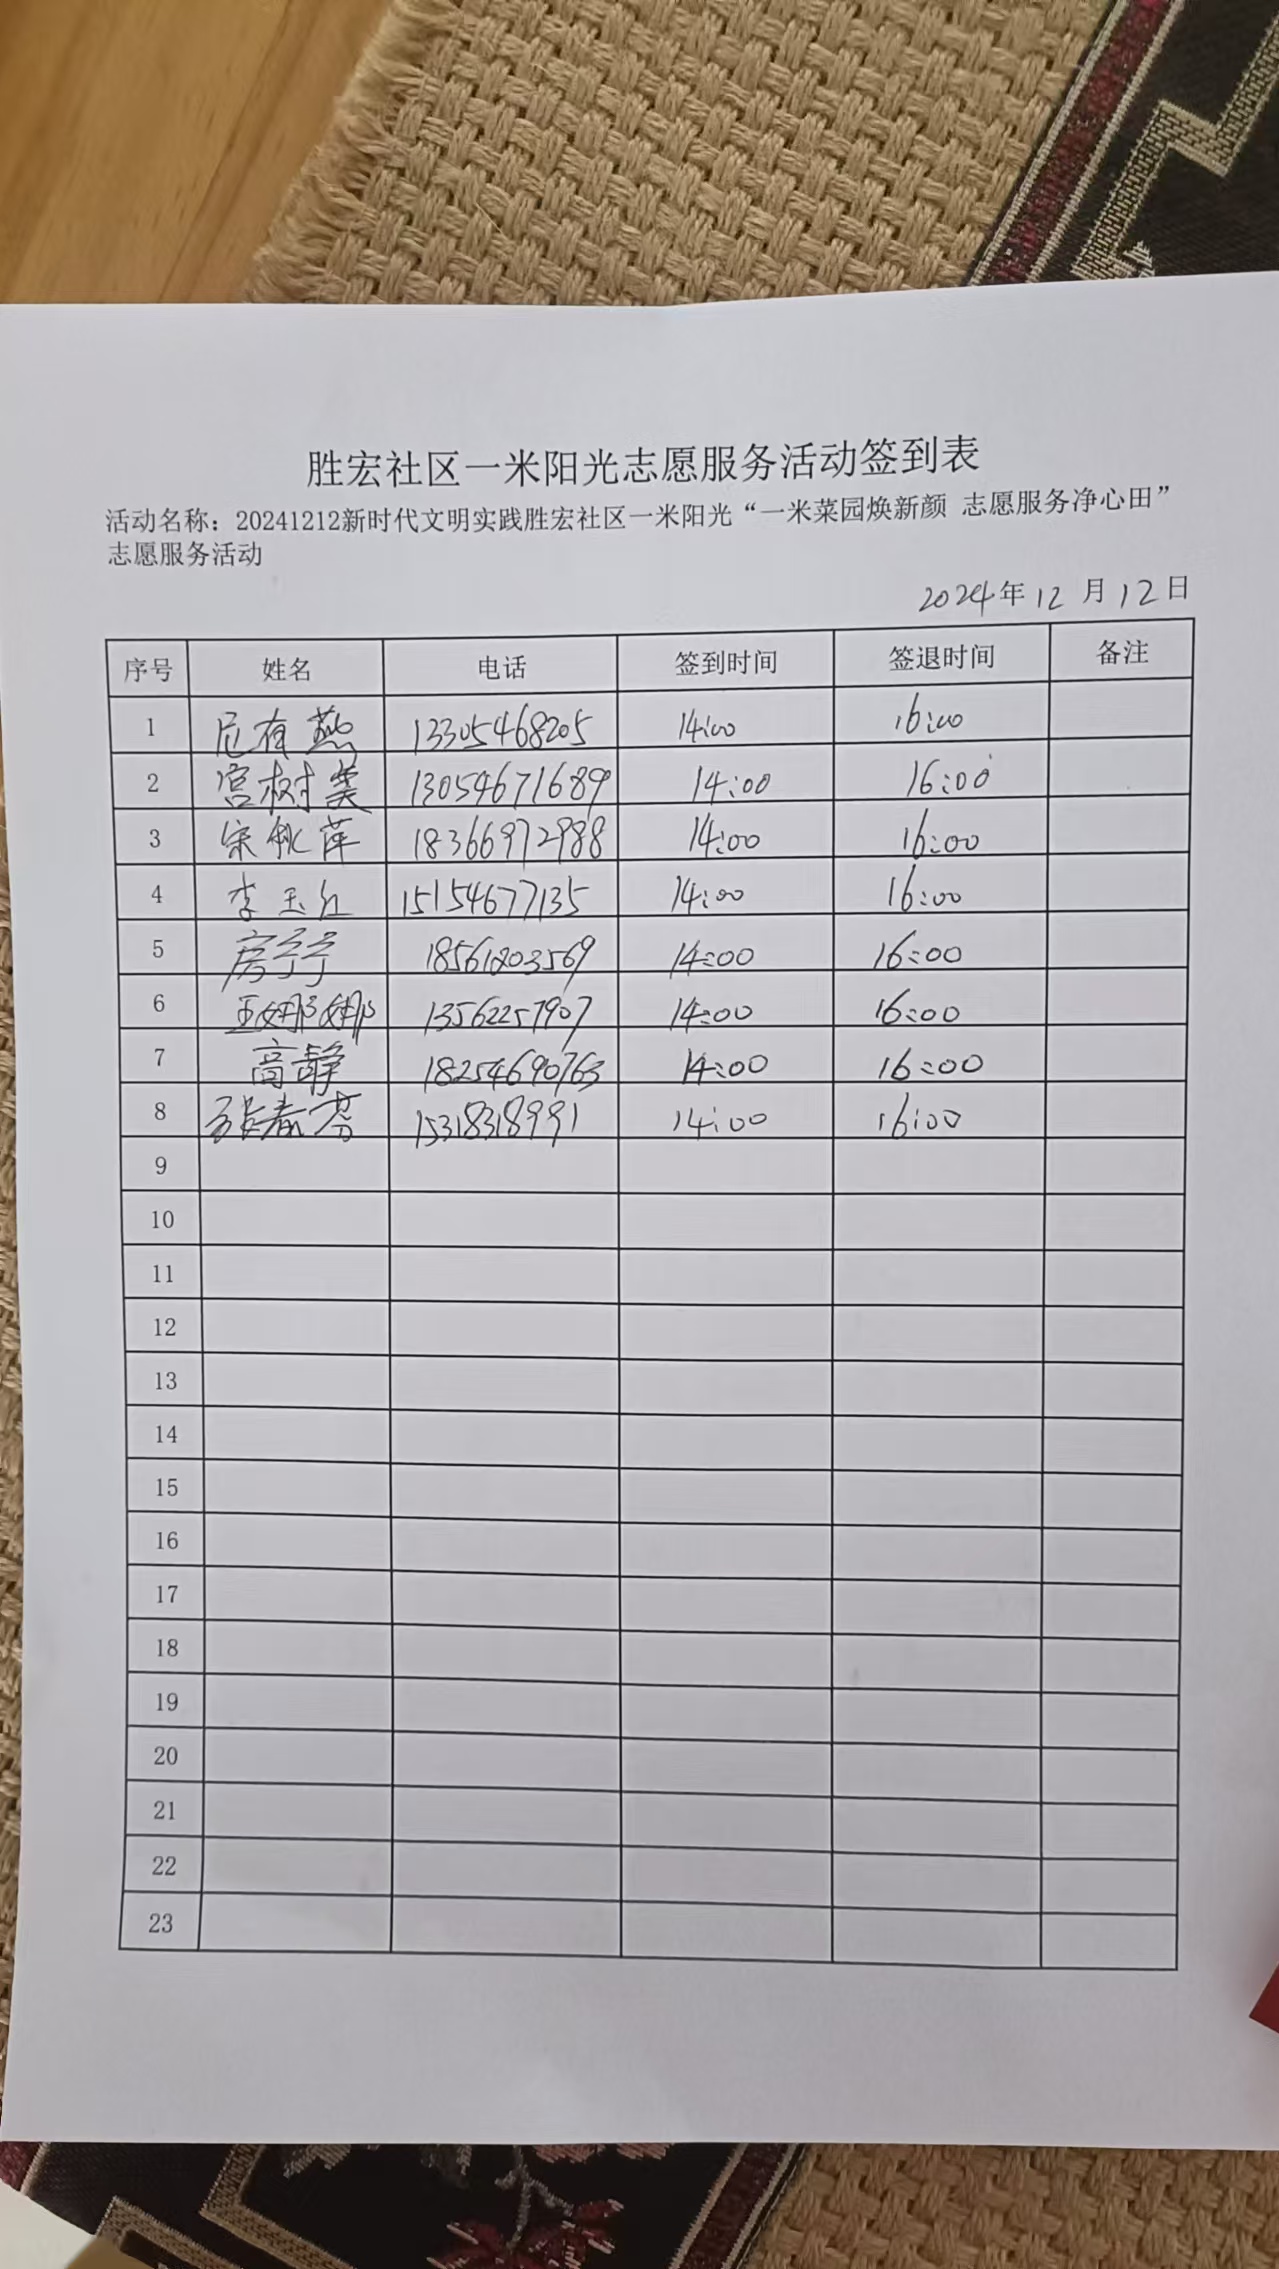 胜宏社区一米阳光志愿服务活动签到表
活动名称：20241212新时代文明实践胜宏社区一米阳光“一米菜园焕新颜 志愿服务净心田”
志愿服务活动
2024年12月12日
序号 姓名 电话 签到时间 签退时间 备注
1 有燕 13305468205 14:00 16:00
2 宫树美 13054671689 14:00 16:00
3 宋秋萍 18366972988 14:00 16:00
4 李玉红 15154677135 14:00 16:00
5 房 18561203569 14:00 16:00
6 王娜娜 13562257907 14:00 16:00
7 高静 18254690763 14:00 16:00
8 张春芬 15318318991 14:00 16:00
9
10
11
12
13
14
15
16
17
18
19
20
21
22
23